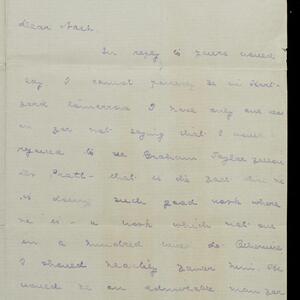 Dear Nash
In reply to yours would
say I cannot possibly be in Hart-
ford tomorrow I have only one rea
on for not saying that I would
rejoiced to see Graham Taylor follow
Dr Pratt - that is the fact that he
is doing such good work where
he is - a work which not one
in a hundred could do. Otherwise
I should heartily favor him. He
would be an admirable man for